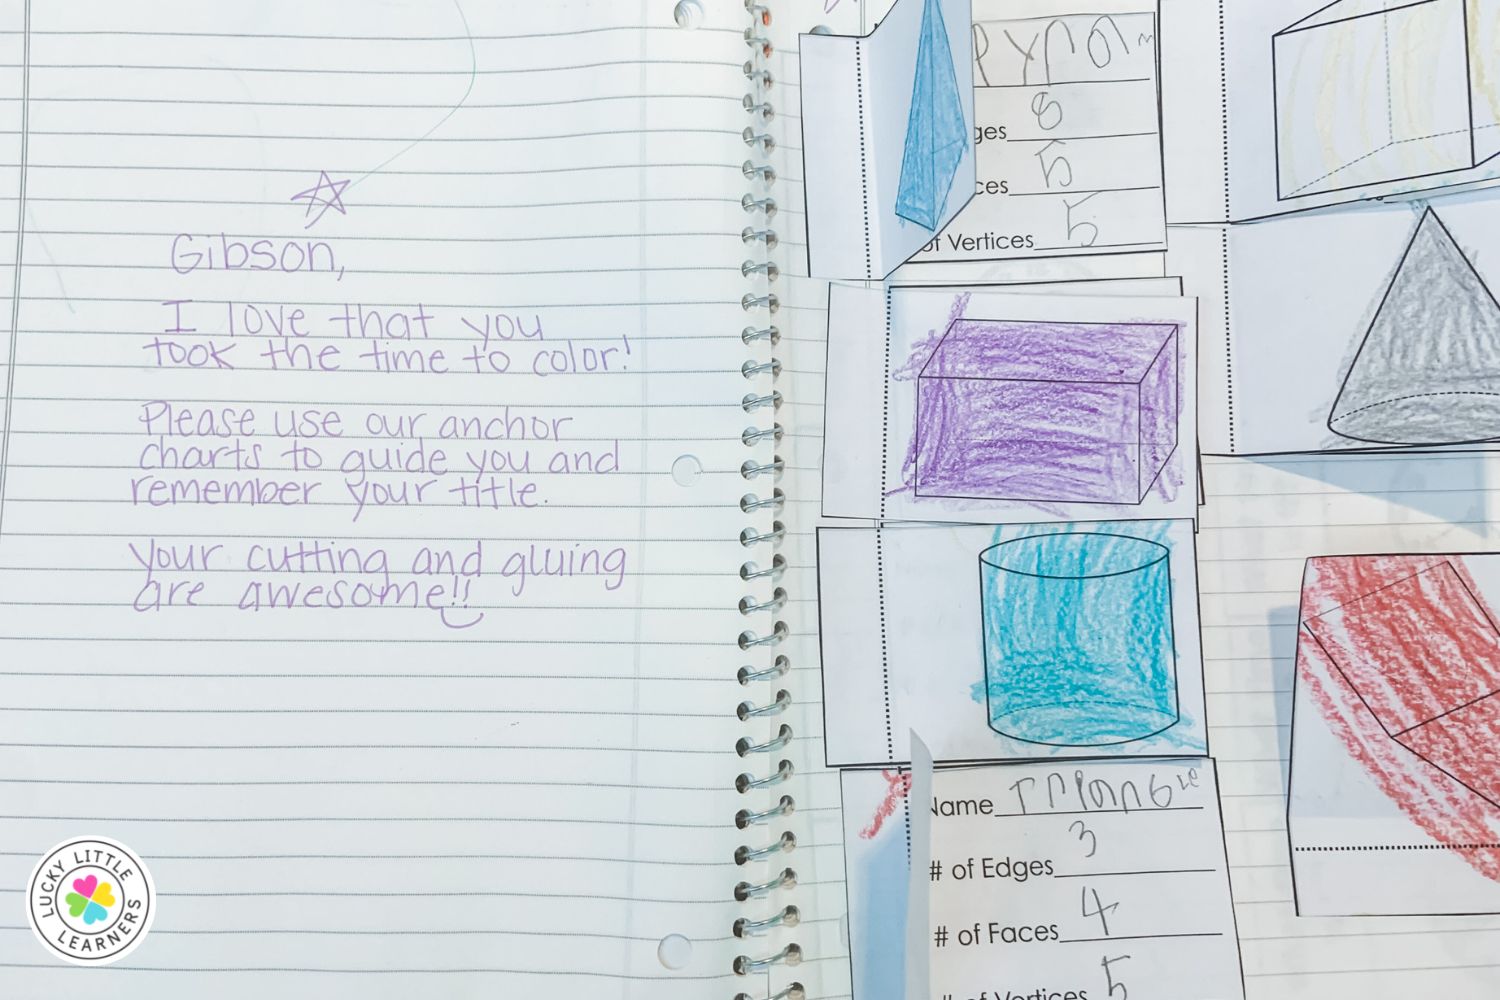 Gibson,
I love that you
took the time to color!
Please use our anchor
charts to guide you and
remember your title.
Your cutting and gluing
are awesome!!
Pyram
ges 8
ces 5
of Vertices 5
Name Triangle
# of Edges 3
# of Faces 4
# of Vertices 5
LUCKY LITTLE
LEARNERS